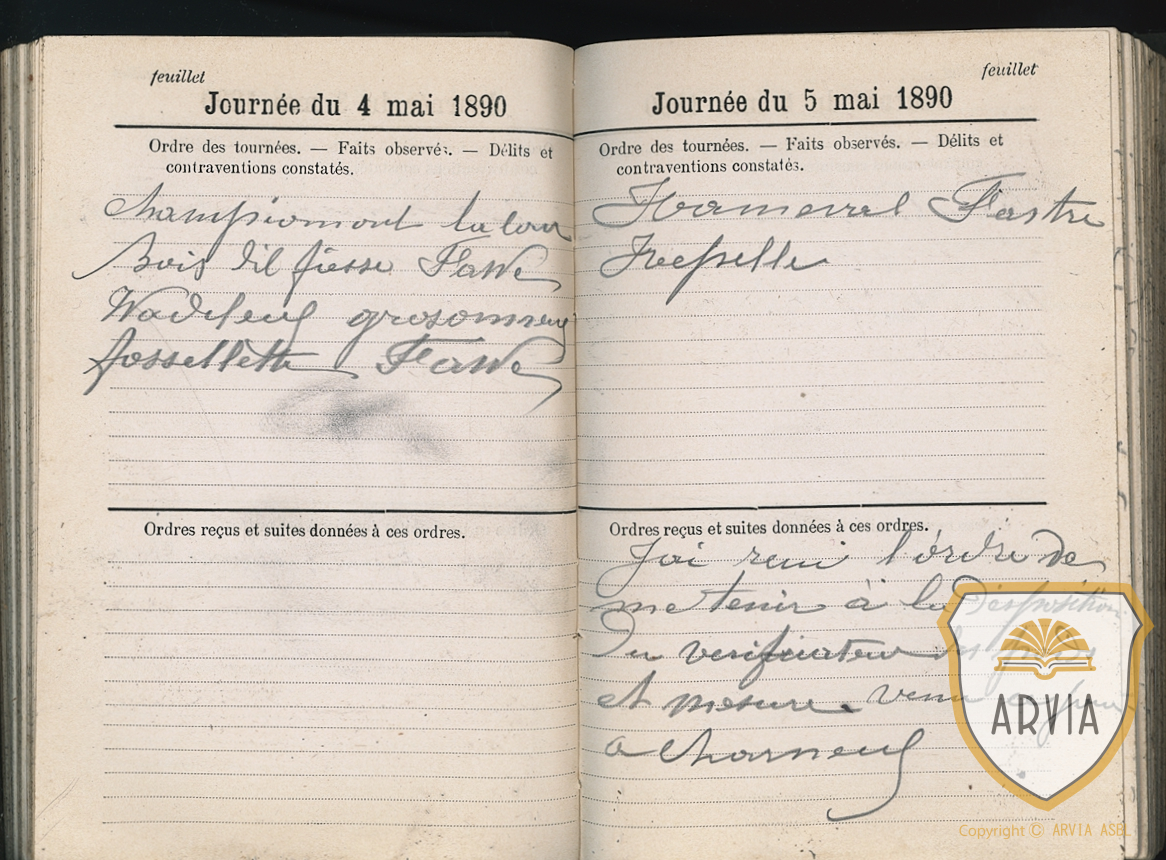 feuillet
Journée du 4 mai 1890
Ordre des tournées. — Faits observés. — Délits et
contraventions constatés.
Championont la tour
Bois del fiesse Flawe
Wadeleux grosommeu
fossellette Flawe
Ordres reçus et suites données à ces ordres.
feuillet
Journée du 5 mai 1890
Ordre des tournées. — Faits observés. — Délits et
contraventions constatés.
Flastre
Ordres reçus et suites données à ces ordres.
Jai remi l'ordre de
me tenir à la desposition
Du verificateur des poids
et mesure. venu
a charneux
ARVIA
Copyright © ARVIA ASBL